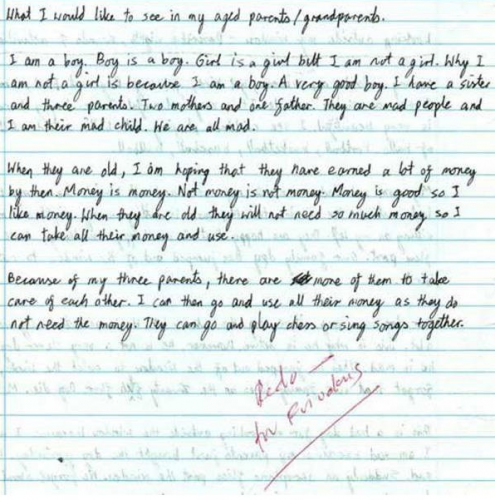 What I would like to see in my aged parents/grandparents.
I am a boy. Boy is a boy. Girl is a girl but I am not a girl. Why I
am not a girl is because I am a boy. A very good boy. I have a sister
and three parents. Two mothers and one father. They are mad people and
I am their mad child. We are all mad.
When they are old, I am hoping that they have earned a lot of money
by then. Money is money. Not money is not money. Money is good so I
like money. When they are old they will not need so much money so I
can take all their money and use.
Because of my three parents, there are more of them to take
care of each other. I can then go and use all their money as they do
not need the money. They can go and play chess or sing songs together.
Redo –
for